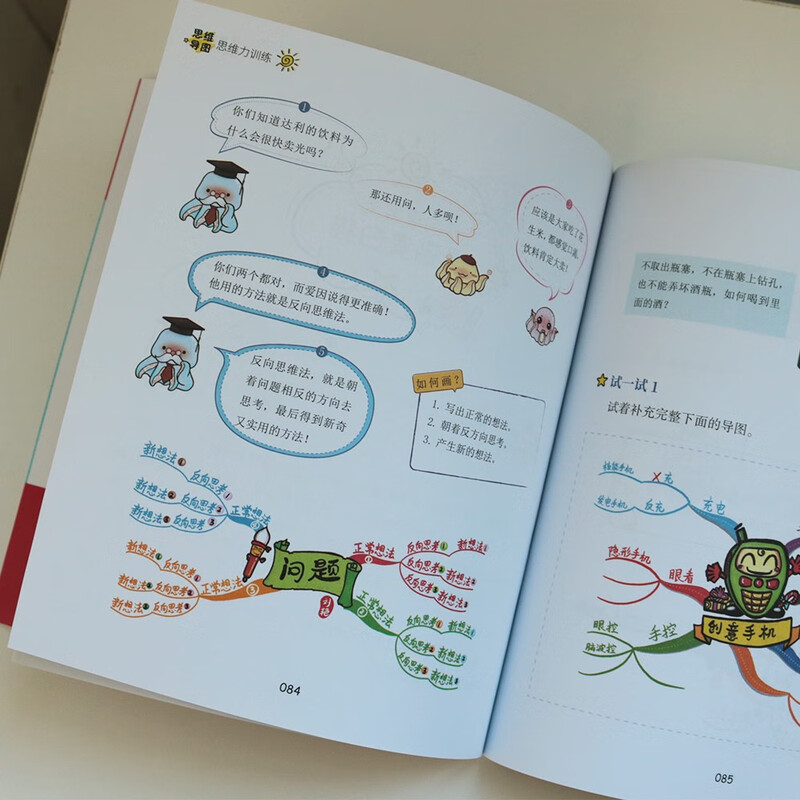 思维
导图
思维力训练
1
你们知道达利的饮料为
什么会很快卖光吗？
2
那还用问，人多呗！
3
应该是大家吃了花
生米，都感觉口渴，
饮料肯定大卖！
4
你们两个都对，而爱因说得更准确！
他用的方法就是反向思维法。
5
反向思维法，就是朝
着问题相反的方向去
思考，最后得到新奇
又实用的方法！
如何画？
1. 写出正常的想法。
2. 朝着反方向思考。
3. 产生新的想法。
新想法1 反向思考1
新想法2 反向思考2
新想法3 反向思考3
正常想法
新想法1 反向思考1
新想法2 反向思考2
新想法3 反向思考3
正常想法3
问题
正常想法1
反向思考1 新想法1
反向思考2 新想法2
反向思考3 新想法3
正常想法2
反向思考1 新想法1
反向思考2 新想法2
反向思考3 新想法3
084
不取出瓶塞，不在瓶塞上钻孔，
也不能弄坏酒瓶，如何喝到里
面的酒？
试一试 1
试着补充完整下面的导图。
充
发电手机 反充
充电
隐形手机
眼看
眼控
脑波控
手控
创意手机
085